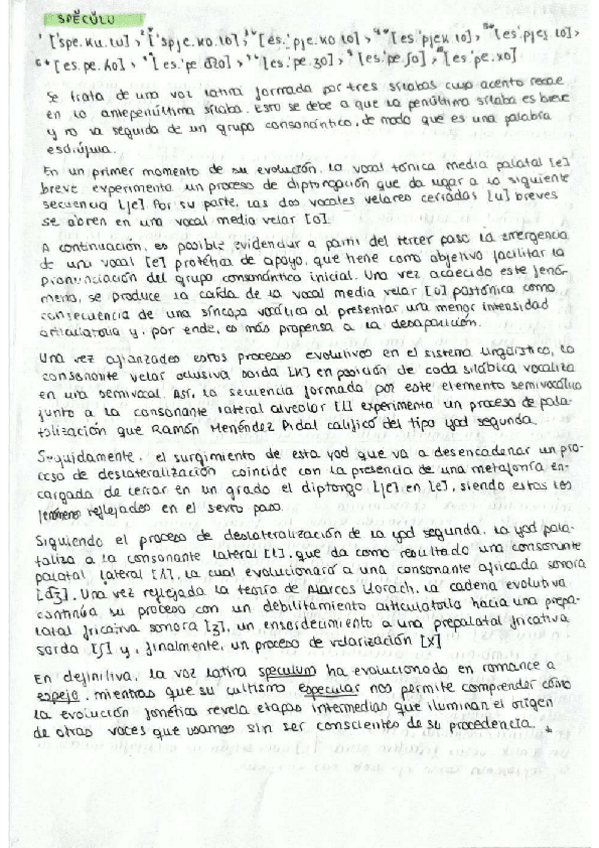 SPĔCŬLU
1 ['spe.ku.lu] > 2 ['spje.ko.lo] > 3º [es.'pje.ko.lo] > 4º [es.'pjek.lo] > 5º [es.'pjei̯.lo] >
6º [es.pe.ʎo] > 7º [es.'pe.dʒo] > 8º [es.'pe.ʒo] > 9 [es.'pe.ʃo] > 10 [es.'pe.xo]
Se trata de una voz latina formada por tres sílabas cuyo acento recae
en la antepenúltima sílaba. Esto se debe a que la penúltima sílaba es breve
y no va seguida de un grupo consonántico, de modo que es una palabra
esdrújula.
En un primer momento de su evolución, la vocal tónica media palatal [e]
breve experimenta un proceso de diptongación que da lugar a la siguiente
secuencia [je]. Por su parte, las dos vocales velares cerradas [u] breves
se abren en una vocal media velar [o].
A continuación, es posible evidenciar a partir del tercer paso la emergencia
de una vocal [e] protética de apoyo, que tiene como objetivo facilitar la
pronunciación del grupo consonántico inicial. Una vez acaecido este fenó-
meno, se produce la caída de la vocal media velar [o] postónica como
consecuencia de una síncopa vocálica al presentar una menor intensidad
articulatoria y, por ende, es más propensa a la desaparición.
Una vez afianzados estos procesos evolutivos en el sistema lingüístico, la
consonante velar oclusiva sorda [k] en posición de coda silábica vocaliza
en una semivocal. Así, la secuencia formada por este elemento semivocálico
junto a la consonante lateral alveolar [l] experimenta un proceso de pala-
talización que Ramón Menéndez Pidal calificó del tipo yod segunda.
Seguidamente, el surgimiento de esta yod que va a desencadenar un pro-
ceso de deslateralización coincide con la presencia de una metafonía en-
cargada de cerrar en un grado el diptongo [je] en [e], siendo estos los
fenómenos reflejados en el sexto paso.
Siguiendo el proceso de deslateralización de la yod segunda, la yod pala-
taliza a la consonante lateral [l], que da como resultado una consonante
palatal lateral [ʎ], la cual evolucionará a una consonante africada sonora
[dʒ]. Una vez reflejada la teoría de Alarcos Llorach, la cadena evolutiva
continúa su proceso con un debilitamiento articulatorio hacia una prepa-
latal fricativa sonora [ʒ], un ensordecimiento a una prepalatal fricativa
sorda [ʃ] y, finalmente, un proceso de velarización [x]
En definitiva, la voz latina speculum ha evolucionado en romance a
espejo, mientras que su cultismo especular nos permite comprender cómo
la evolución fonética revela etapas intermedias que iluminan el origen
de otras voces que usamos sin ser conscientes de su procedencia.